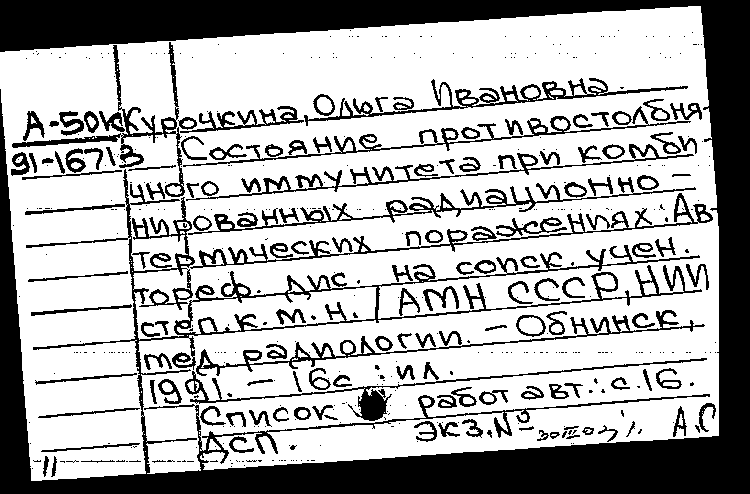 А-50к Курочкина, Ольга Ивановна.
91-16713 Состояние противостолбня-
чного иммунитета при комби-
нированных радиационно-
термических поражениях: Ав-
тореф. дис. на соиск. учен.
степ. к. м. н. / АМН СССР, НИИ
мед. радиологии. - Обнинск,
1991. - 16с : ил.
Список работ авт.: с. 16.
ДСП. Экз. №
А.С
11